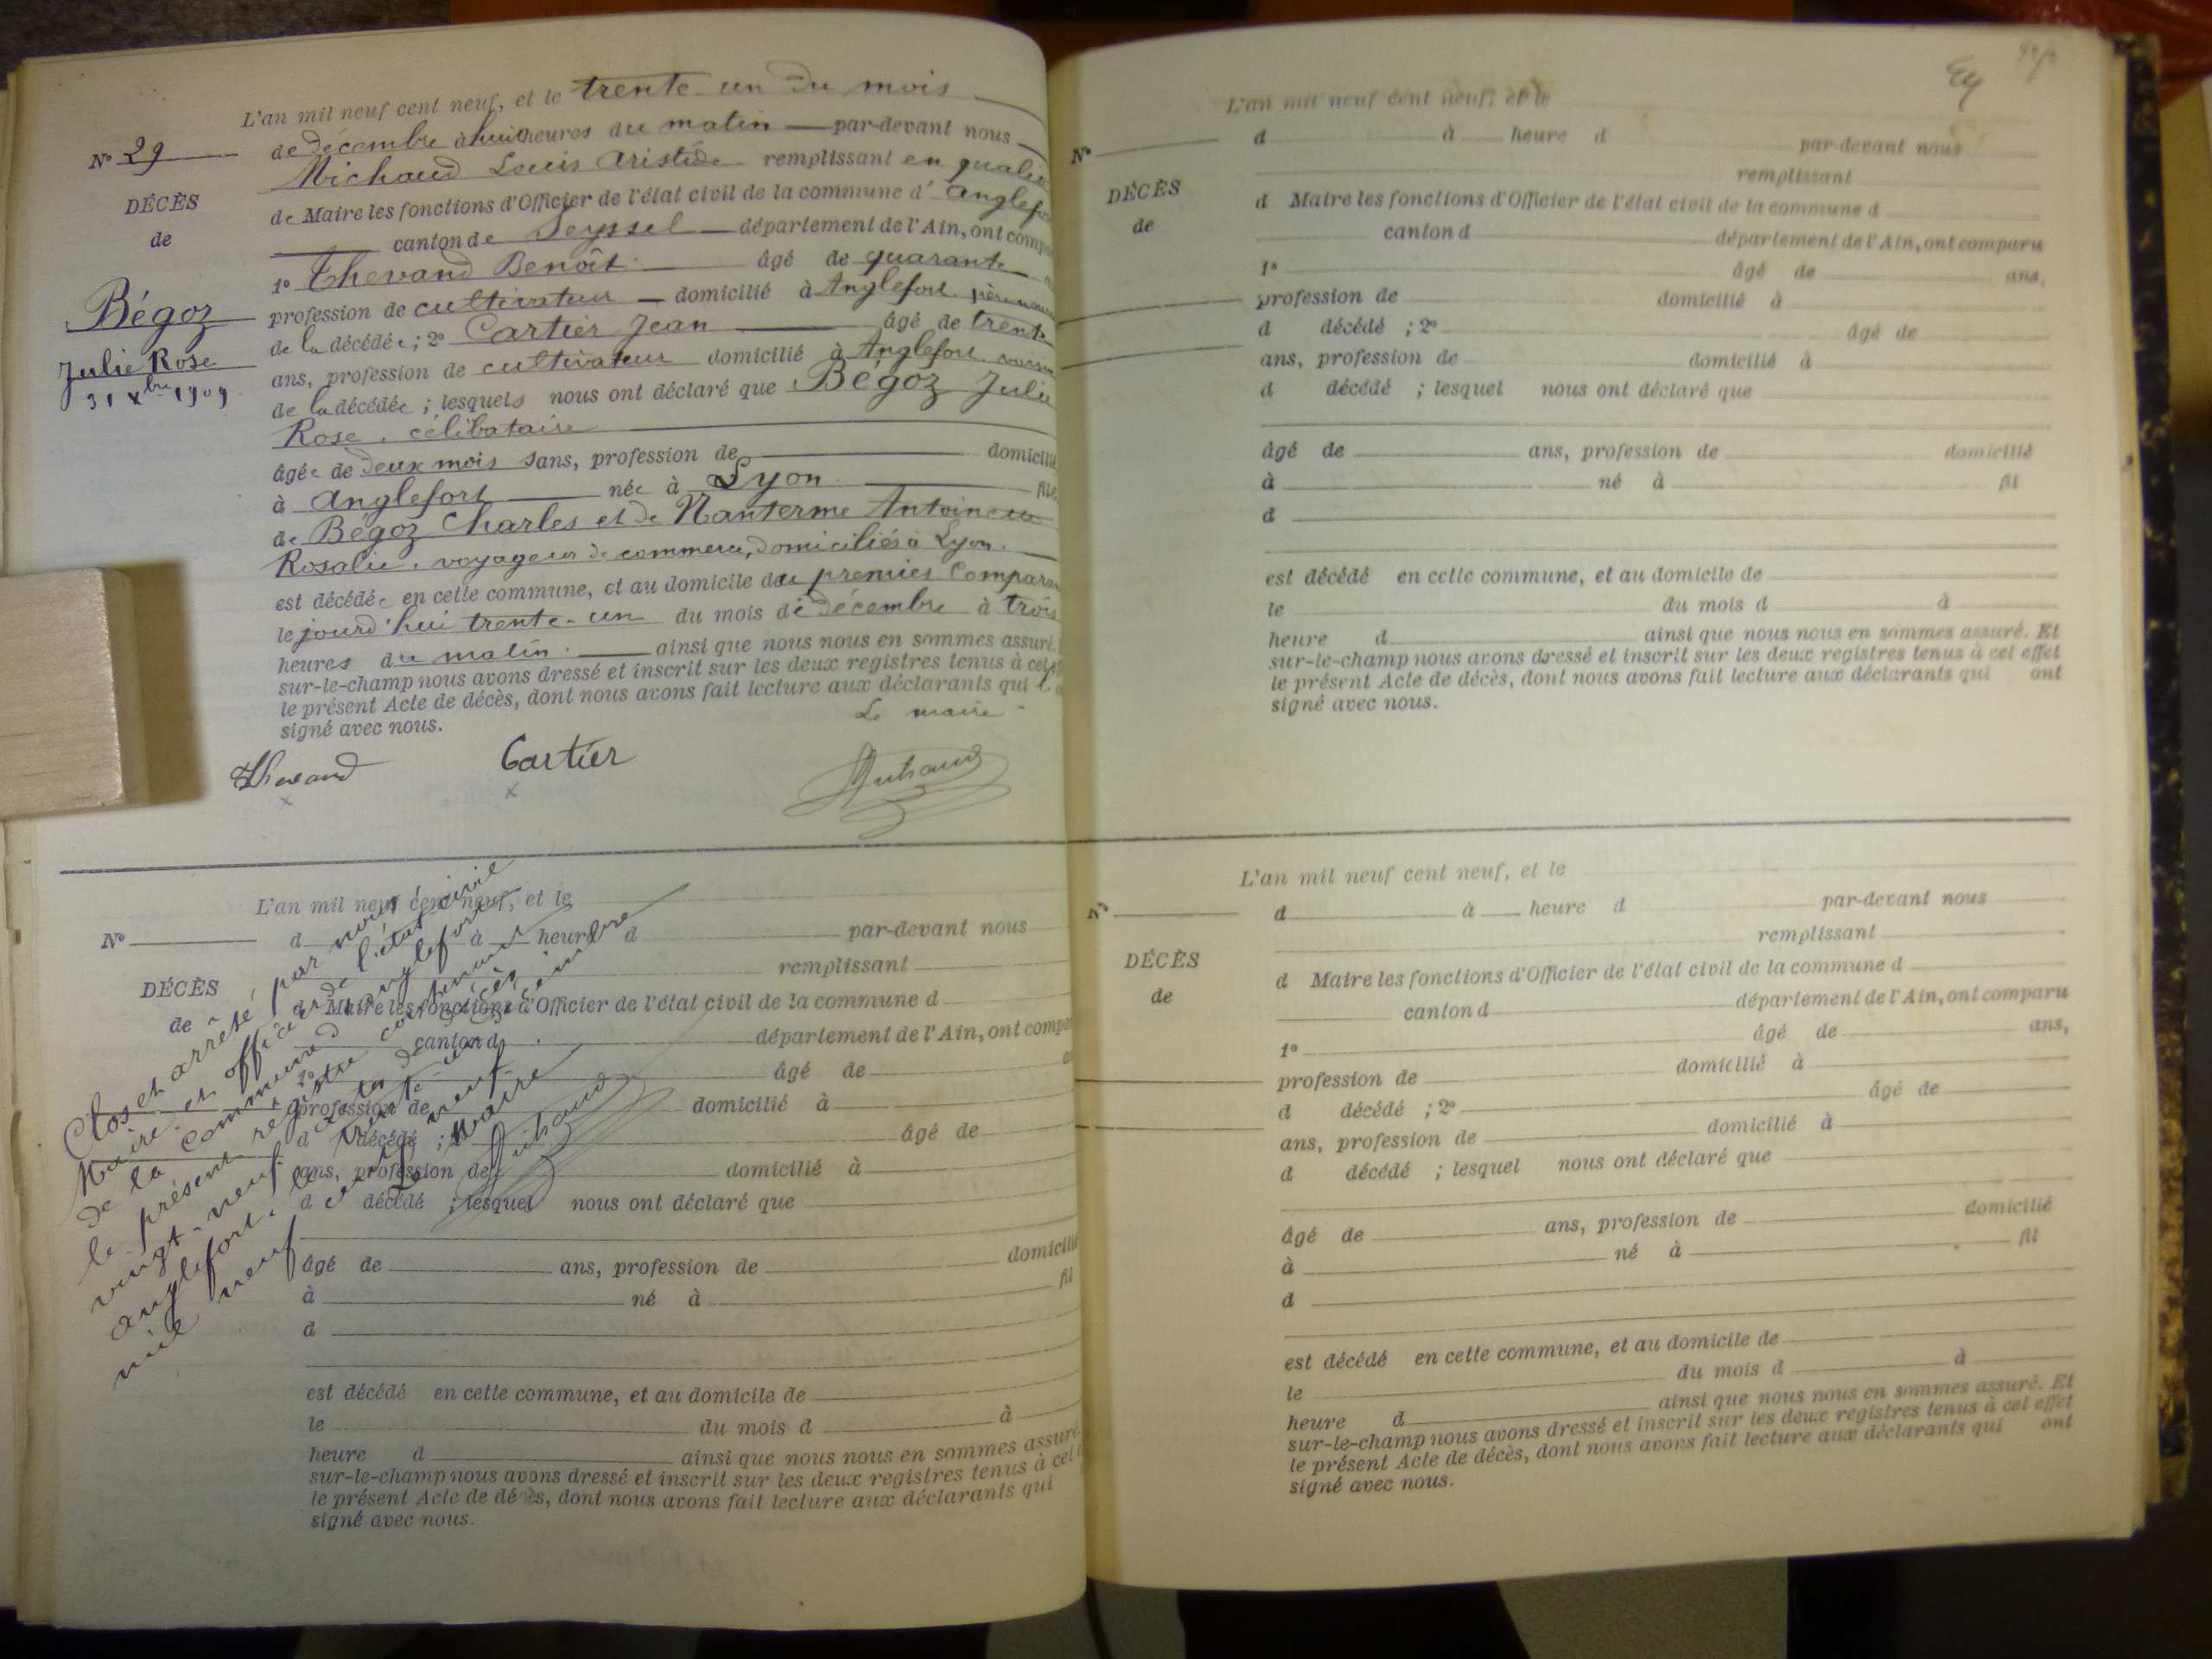 L'an mil neuf cent neuf, et le trente un du mois
de décembre à huit heures du matin par-devant nous
Nº 29
Michaud Louis Aristide remplissant en qualité
DÉCÈS
de Maire les fonctions d'Officier de l'état civil de la commune d'
de
canton de Seyssel département de l'Ain, ont
1º Thevand Benoît âgé de quarante
Bégoz
profession de cultivateur domicilié à Anglefort père
de la décédée ; 2º Cartier Jean âgé de trente
Julie Rose
ans, profession de cultivateur domicilié à Anglefort
31 Xbre 1909
de la décédée ; lesquels nous ont déclaré que Bégoz Julie
Rose, célibataire
âgée de deux mois sans, profession de domicilié
à Anglefort née à Lyon fille
de Bégoz Charles et de Nanterme
Rosalie, voyageur de commerce, domiciliés à Lyon.
est décédée en cette commune, et au domicile du premier
le jourd'hui trente-un du mois de décembre à trois
heures du matin. ainsi que nous nous en sommes assuré.
sur-le-champ nous avons dressé et inscrit sur les deux registres tenus à
le présent Acte de décès, dont nous avons fait lecture aux déclarants qui
signé avec nous.
Le maire
Thevand Cartier Michaud
L'an mil neuf cent neuf, et le
Nº d à heure d par-devant nous
remplissant
DÉCÈS
d Maire les fonctions d'Officier de l'état civil de la commune d
de
canton d département de l'Ain, ont
1º âgé de
profession de domicilié à
d décédé ; 2º âgé de
ans, profession de domicilié à
d décédé ; lesquel nous ont déclaré que
âgé de ans, profession de domicilié
à né à fil
d
est décédé en cette commune, et au domicile de
le du mois d à
heure d ainsi que nous nous en sommes assuré
sur-le-champ nous avons dressé et inscrit sur les deux registres tenus à
le présent Acte de décès, dont nous avons fait lecture aux déclarants qui
signé avec nous.
Clos et arrêté par nous
Maire et officier de l'état civil
de la commune d'Anglefort
le présent registre contenant
vingt-neuf actes de décès
Anglefort, le trente-un décembre
mil neuf cent neuf
Le Maire
Michaud
L'an mil neuf cent neuf, et le
d à heure d par-devant nous
Nº
remplissant
DÉCÈS
d Maire les fonctions d'Officier de l'état civil de la commune d
de
canton d département de l'Ain, ont comparu
1º âgé de ans,
profession de domicilié à
d décédé ; 2º âgé de
ans, profession de domicilié à
d décédé ; lesquel nous ont déclaré que
âgé de ans, profession de domicilié
à né à fil
d
est décédé en cette commune, et au domicile de
le du mois d à
heure d ainsi que nous nous en sommes assuré. Et
sur-le-champ nous avons dressé et inscrit sur les deux registres tenus à cet effet
le présent Acte de décès, dont nous avons fait lecture aux déclarants qui ont
signé avec nous.
L'an mil neuf cent neuf, et le
Nº d à heure d par-devant nous
remplissant
DÉCÈS
d Maire les fonctions d'Officier de l'état civil de la commune d
de
canton d département de l'Ain, ont comparu
1º âgé de ans,
profession de domicilié à
d décédé ; 2º âgé de
ans, profession de domicilié à
d décédé ; lesquel nous ont déclaré que
âgé de ans, profession de domicilié
à né à fil
d
est décédé en cette commune, et au domicile de
le du mois d à
heure d ainsi que nous nous en sommes assuré. Et
sur-le-champ nous avons dressé et inscrit sur les deux registres tenus à cet effet
le présent Acte de décès, dont nous avons fait lecture aux déclarants qui ont
signé avec nous.